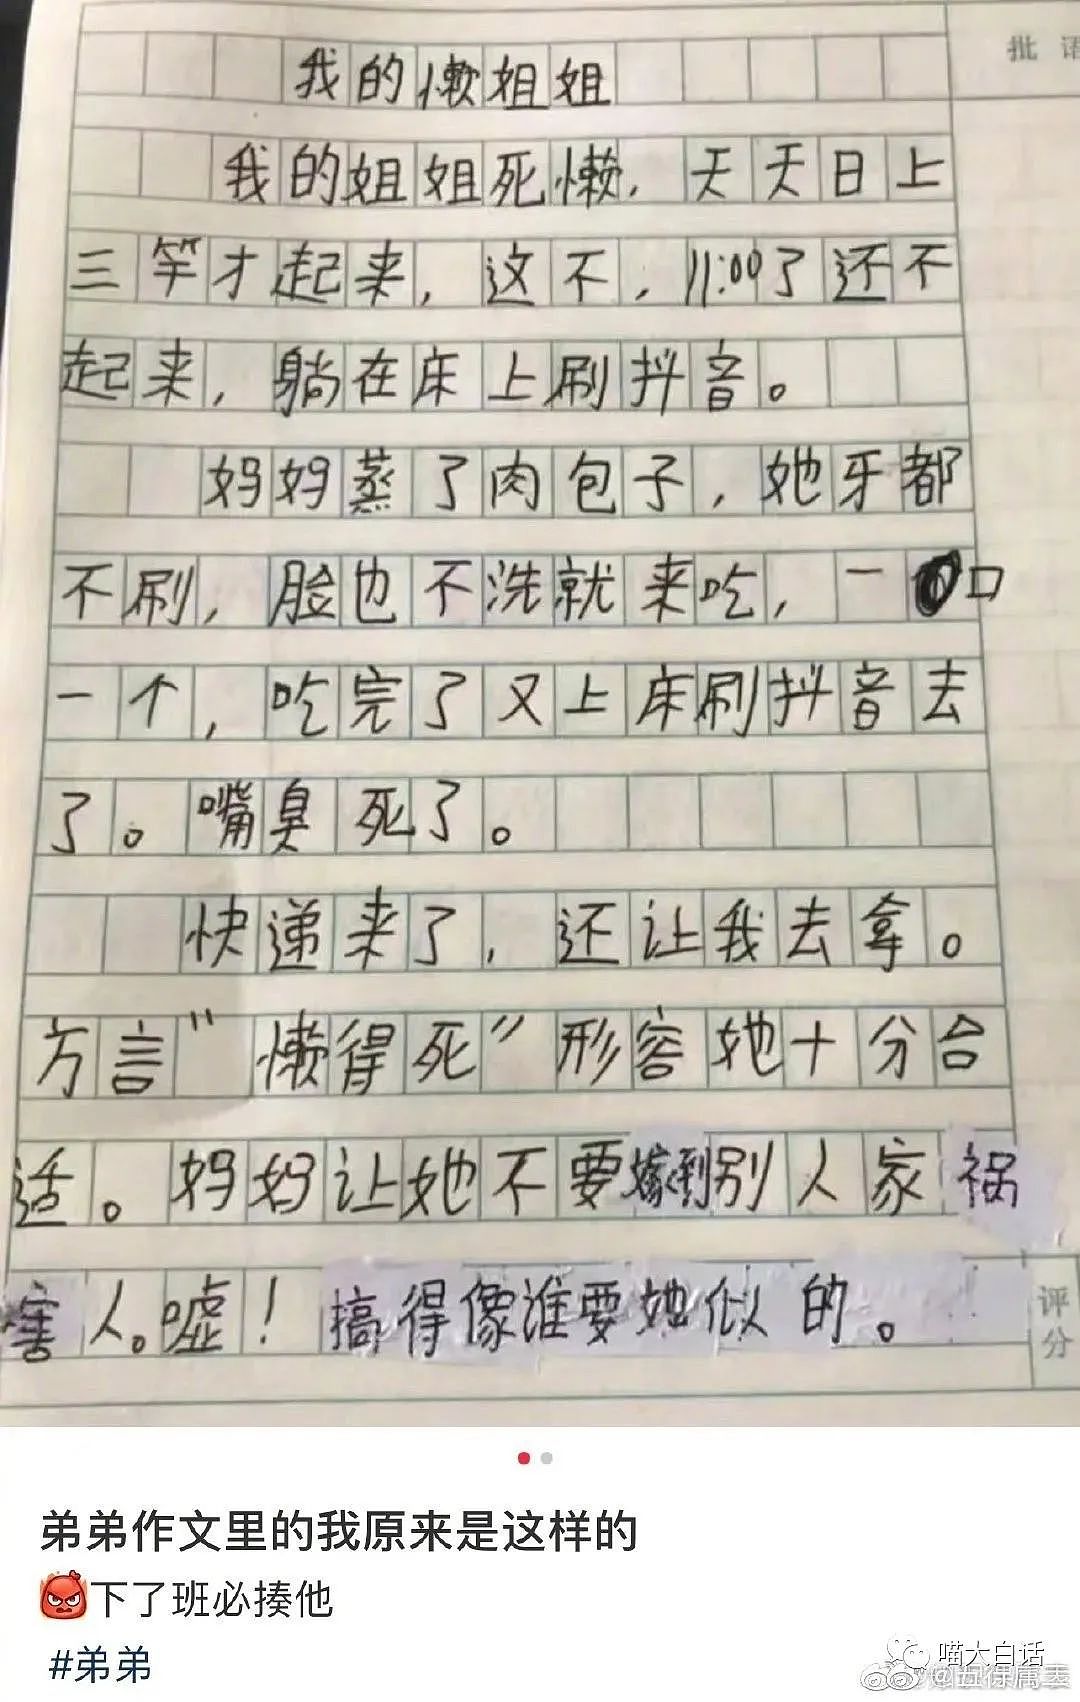 批语
我的懒姐姐
我的姐姐死懒，天天日上
三竿才起来，这不，11:00了还不
起来，躺在床上刷抖音。
妈妈蒸了肉包子，她牙都
不刷，脸也不洗就来吃，一口
一个，吃完了又上床刷抖音去
了。嘴臭死了。
快递来了，还让我去拿。
方言"懒得死"形容她十分合
适。妈妈让她不要嫁到别人家祸
害人。嘘！搞得像谁要她似的。
评分
弟弟作文里的我原来是这样的
下了班必揍他
#弟弟
喵大白话